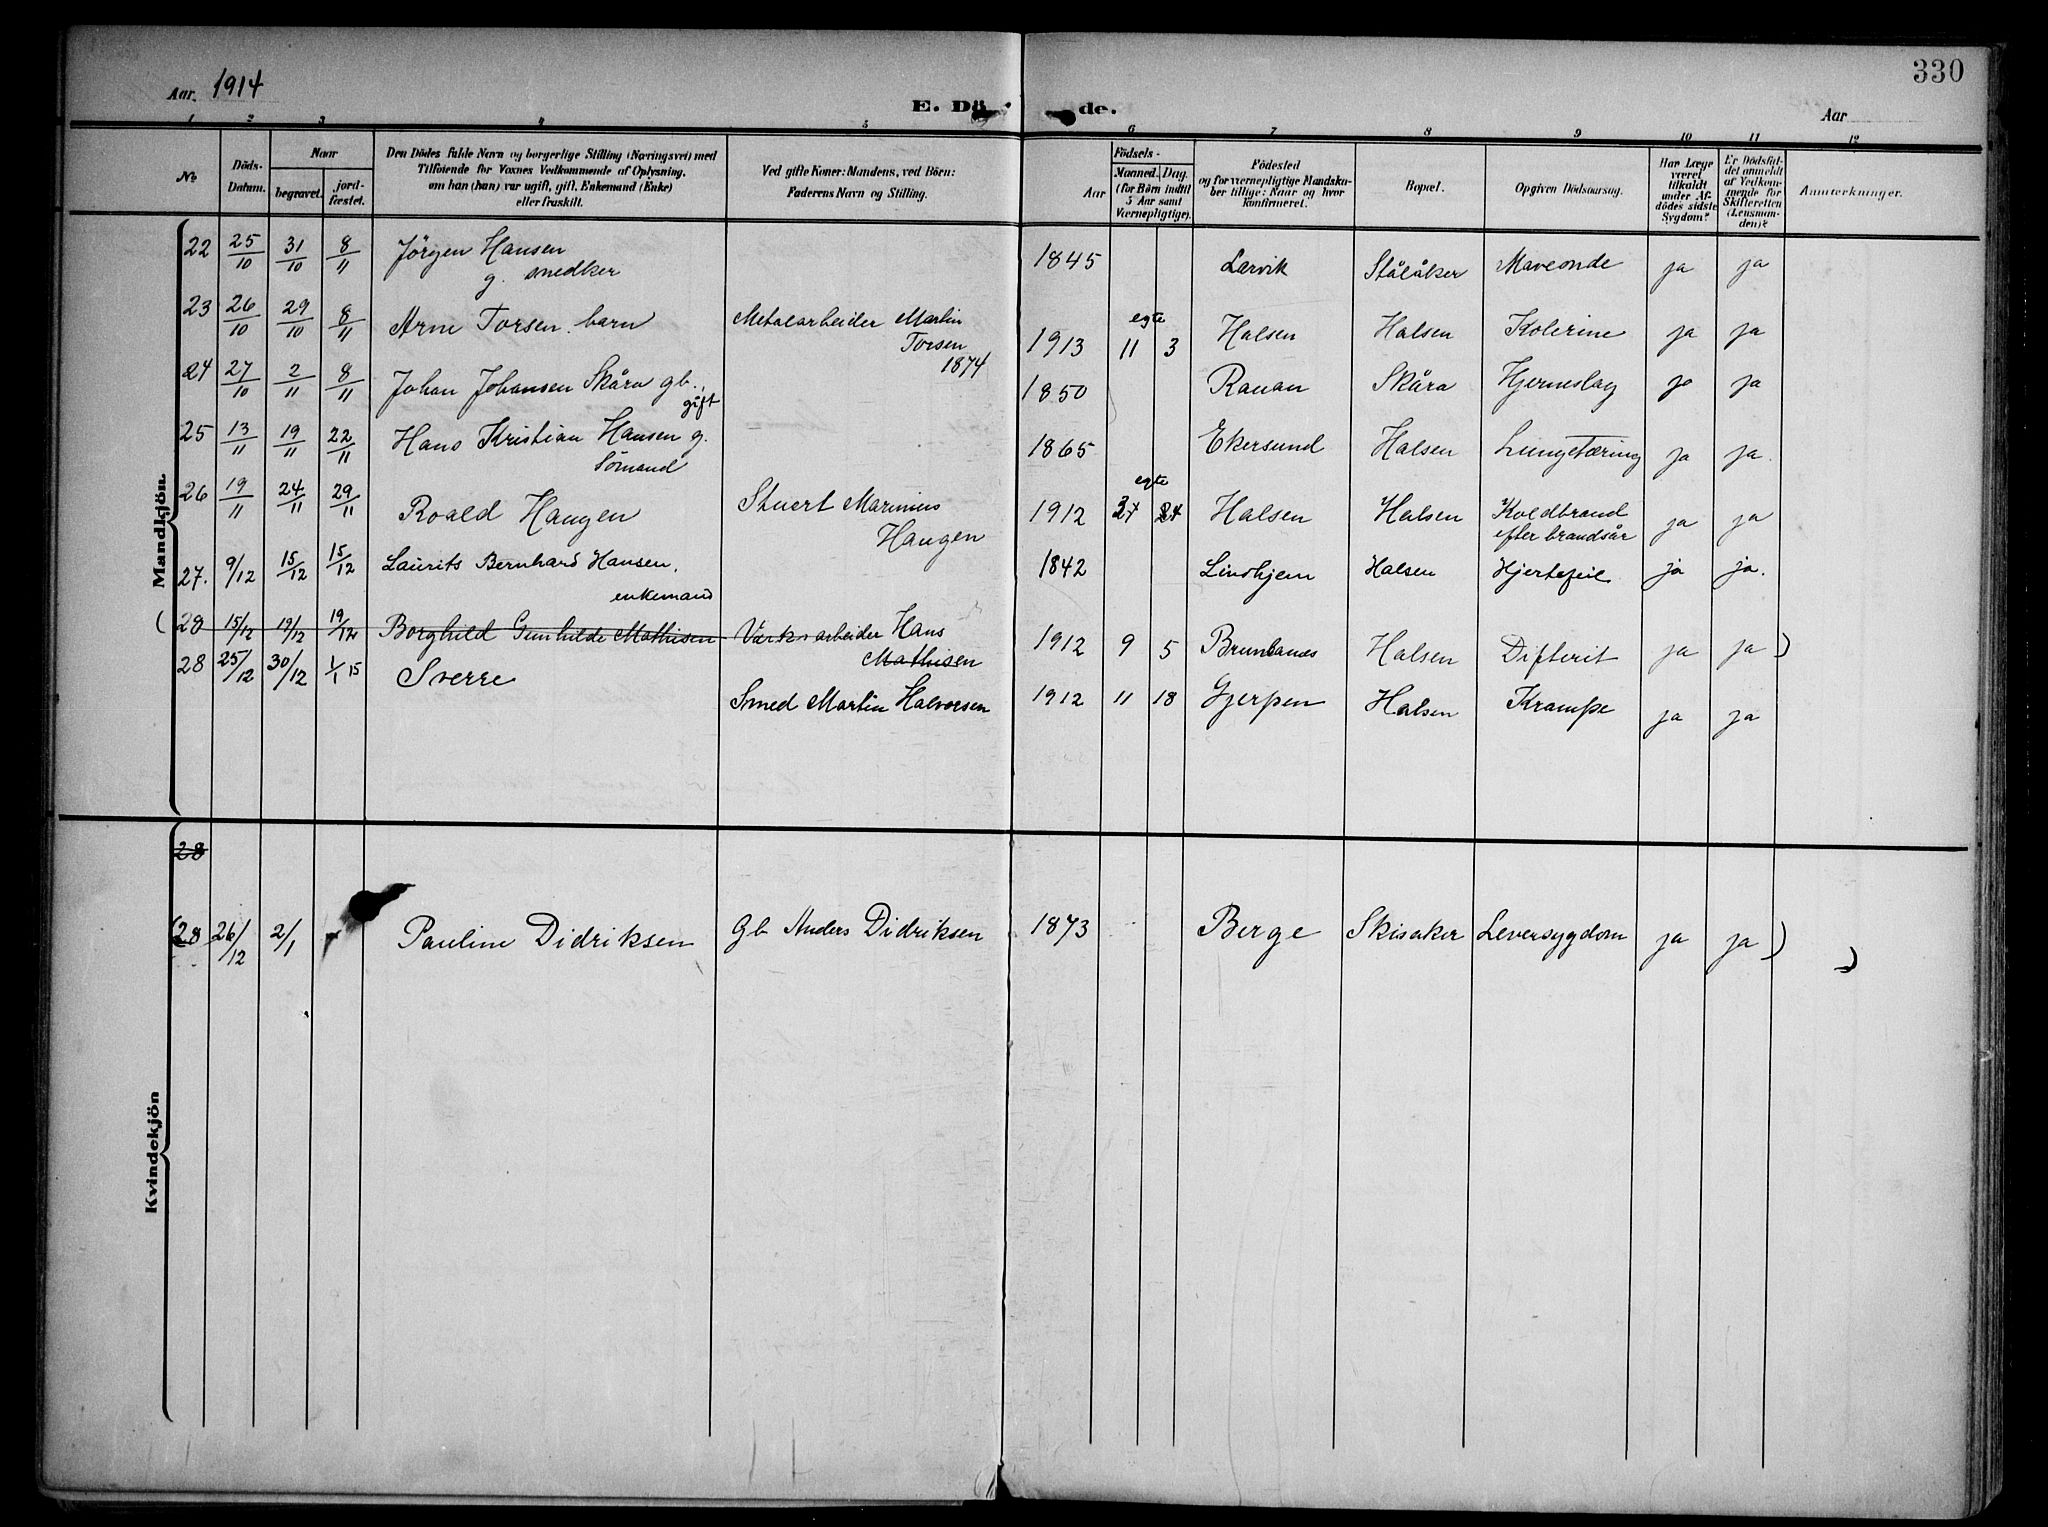 330
Aar. 1914
E. Dö de.
Aar
1 2 3 4 5 6 7 8 9 10 11 12
No
Döds-Datum.
Naar
begravet.
jord-fæstet.
Den Dödes fulde Navn og borgerlige Stilling (Næringsvei) med
Tilföiende for Voxnes Vedkommende af Oplysning,
om han (hun) var ugift, gift, Enkemand (Enke)
eller fraskilt.
Ved gifte Koner: Mandens, ved Börn:
Faderens Navn og Stilling.
Aar
Födsels-
Maaned. Dag.
(for Börn indtil
5 Aar samt
Værnepligtige).
Födested
og for værnepligtige Mandska-
ber tillige: Naar og hvor
Konfirmeret.
Bopæl.
Opgiven Dödsaarsag.
Har Læge
været
tilkaldt
under Af-
dödes sidste
Sygdom?
Er Dödsfal-
det anmeldt
af Vedkom-
mende for
Skifteretten
(Lensman-
den)?
Anmærkninger.
Mandkjön.
22 25/10 31/10 8/11 Jörgen Hansen 1845 Larvik Ståláker Maveonde ja ja
g. snedker
23 26/10 29/10 8/11 Arne Torsen. barn Metalarbeider Martin egte 1913 11 3 Halsen Halsen Kolerine ja ja
Torsen
1874
24 27/10 2/11 8/11 Johan Johansen Skåra gb., 1850 Rauan Skåra Hjerneslag ja ja
gift
25 13/11 19/11 22/11 Hans Kristian Hansen g. 1865 Ekersund Halsen Lungetæring ja ja.
Sömand
26 19/11 24/11 29/11 Roald Haugen Stuert Marinius egte 1912 Halsen Halsen Koldbrand ja ja
Haugen efter brandsår
27. 9/12 15/12 15/12 Laurits Bernhard Hansen, 1842 Lindhjem Halsen Hjertefeil ja ja.
enkemand
(28 15/12 19/12 19/12 Borghild Gunhilde Mathisen Værksarbeider Hans 1912 9 5 Brunlanes Halsen Difterit ja ja)
Mathisen
28 25/12 30/12 1/1 15 Sverre 1912 11 18 Gjerpen Halsen Krampe ja ja
Smed Martin Halvorsen
Kvindekjön
28
(28 26/12 2/1 Pauline Didriksen Gb Anders Didriksen 1873 Berge Skisaker Leversygdom ja ja)